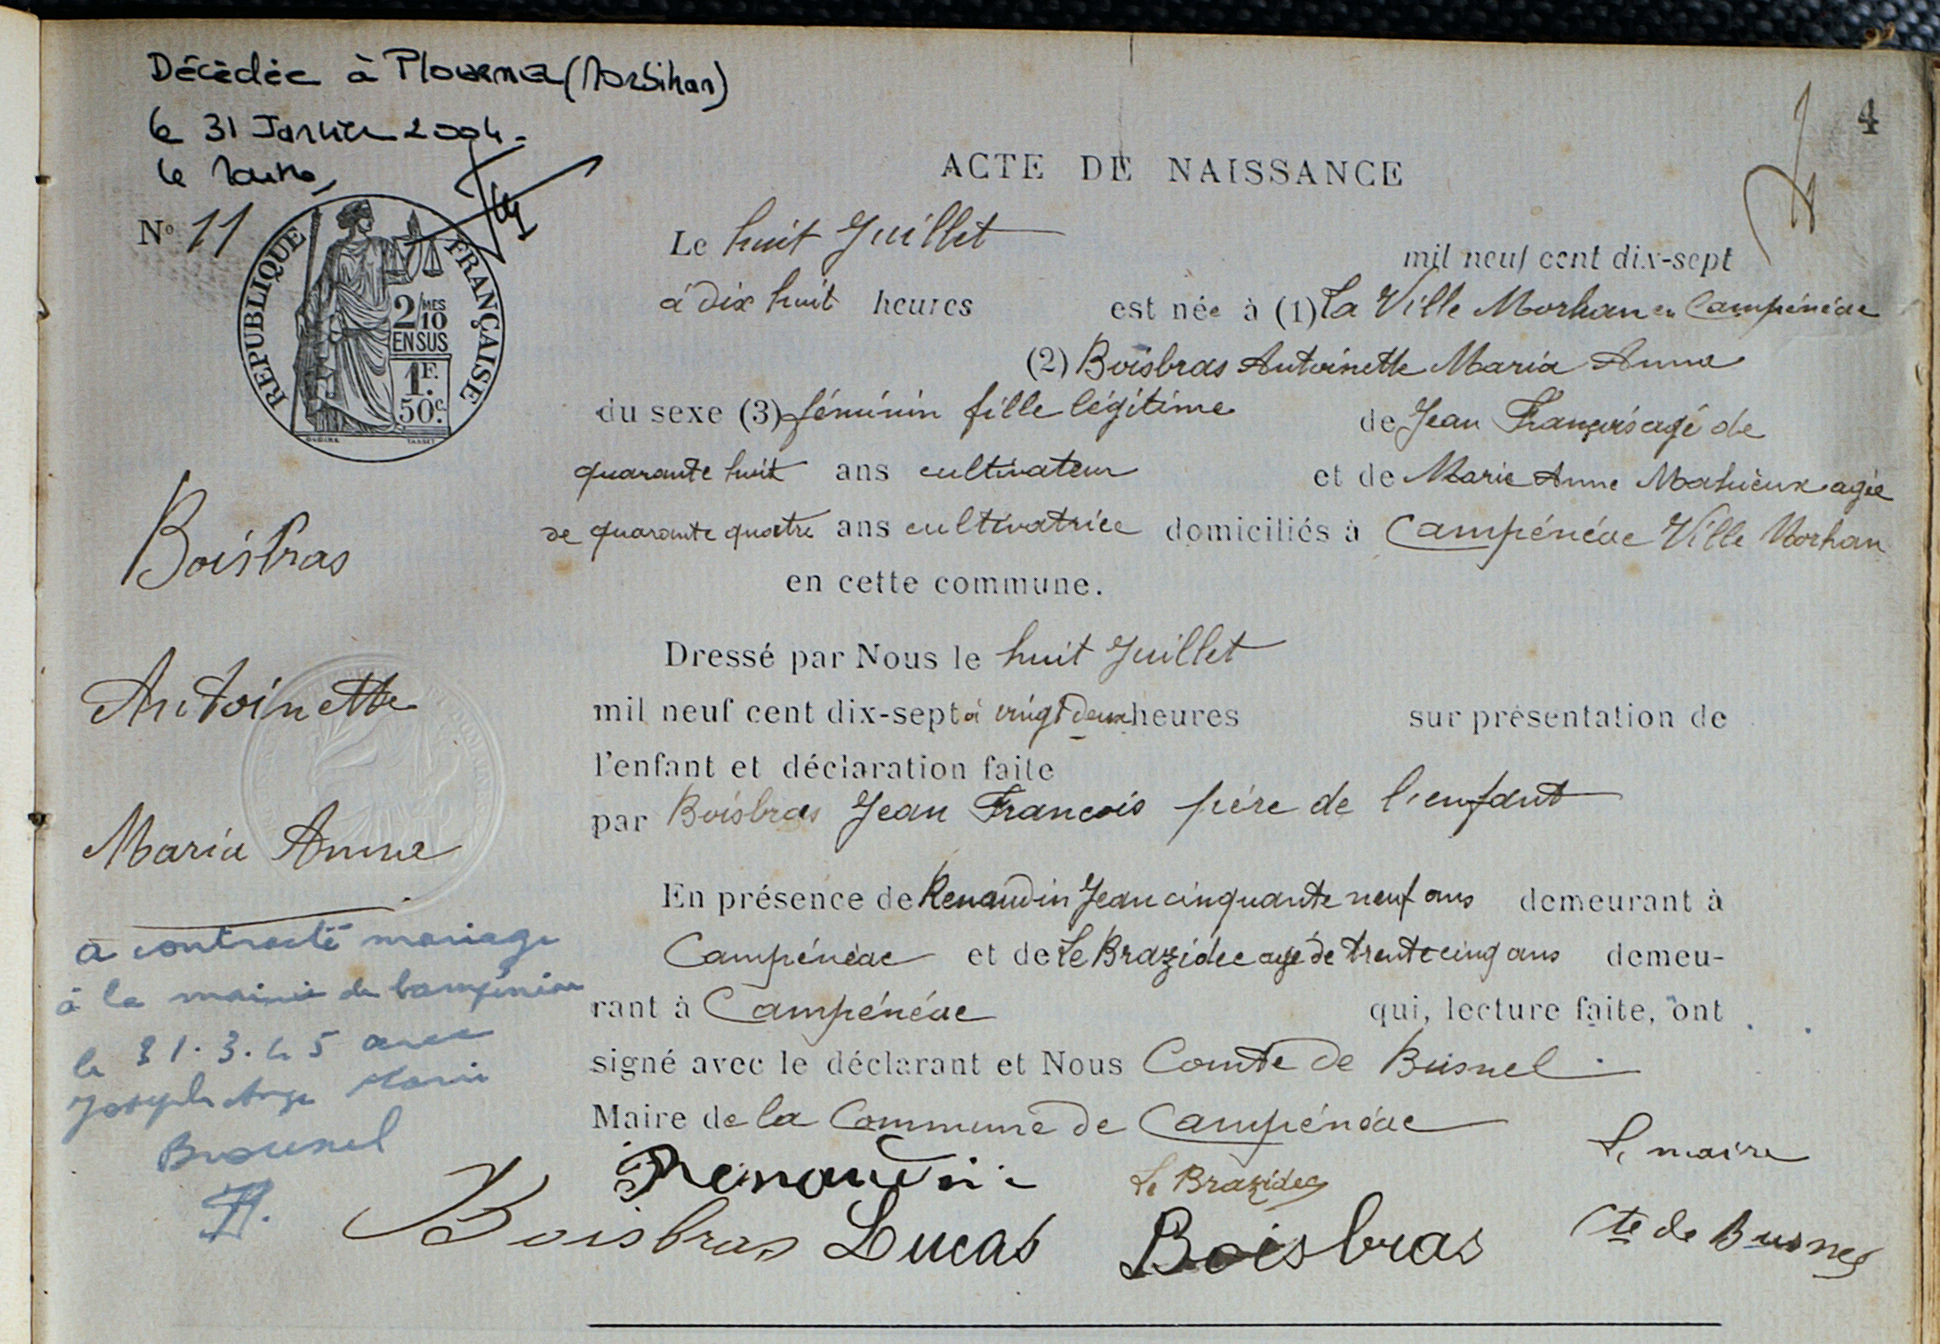 Décédée à Ploërmel (Morbihan)
le 31 Janvier 2004.
le Maire,
4
ACTE DE NAISSANCE
N° 11
RÉPUBLIQUE FRANÇAISE
2/10 MES
EN SUS
1F.
50c.
Le huit Juillet mil neuf cent dix-sept
à dix huit heures est née à (1) La Ville Morhan en Campénéac
(2) Boisbras Antoinette Maria Anna
du sexe (3) féminin fille légitime de Jean François agé de
quarante huit ans cultivateur et de Marie Anne Mahieux agée
de quarante quatre ans cultivatrice domiciliés à Campénéac Ville Morhan
en cette commune.
Boisbras
Antoinette
Maria Anna
Dressé par Nous le huit Juillet
mil neuf cent dix-sept à vingt deux heures sur présentation de
l'enfant et déclaration faite
par Boisbras Jean François père de l'enfant
En présence de Renaudin Jean cinquante neuf ans demeurant à
Campénéac et de Le Brazidec agé de trente cinq ans demeu-
rant à Campénéac qui, lecture faite, ont
signé avec le déclarant et Nous Comte de Busnel
Maire de la Commune de Campénéac
a contracté mariage
à la mairie de Campénéac
le 31.3.45 avec
Joseph Ange Marie
Brounel
Renaudin Le Brazidec Le maire
Boisbras Lucas Boisbras Cte de Busnel